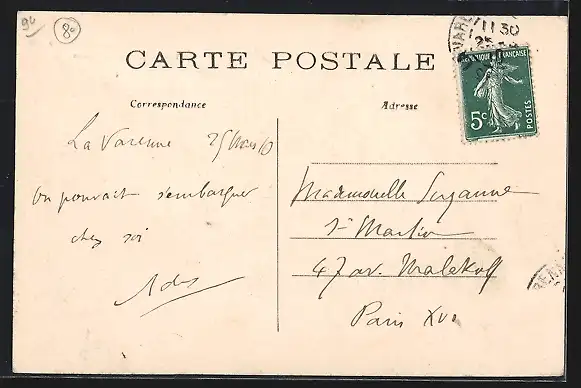 90
80
CARTE POSTALE
Correspondance
Adresse
11 30
25
RÉPUBLIQUE FRANÇAISE
5c
POSTES
La Varenne 25 Mars 10
On pourrait s'embarquer
chez soi
Mademoiselle Suzanne
St Martin
47 av. Malakoff
Paris XVI